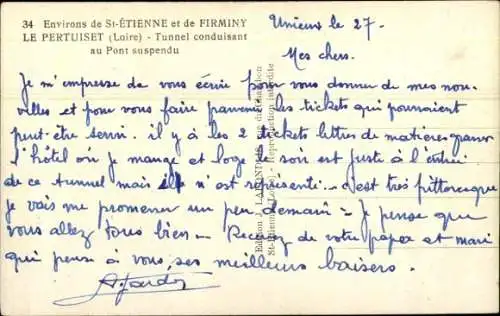 34 Environs de St-ÉTIENNE et de FIRMINY
LE PERTUISET (Loire) - Tunnel conduisant
au Pont suspendu
Unieux le 27-
Mes chers.
Je m'empresse de vous écrire pour vous donner de mes nou-
velles et pour vous faire parvenir les tickets qui pourraient
peut-être servir. il y à les 2 tickets lettres de matières grasses
l'hôtel où je mange et loge le soir est juste à l'entrée
de ce tunnel mais il n'est pas représenté... c'est très pittoresque
je vais me promener un peu demain - Je pense que
vous allez tous bien - Recevez de votre papa et mari
qui pense à vous, ses meilleurs baisers.
Edition J.
Reproduction interdite